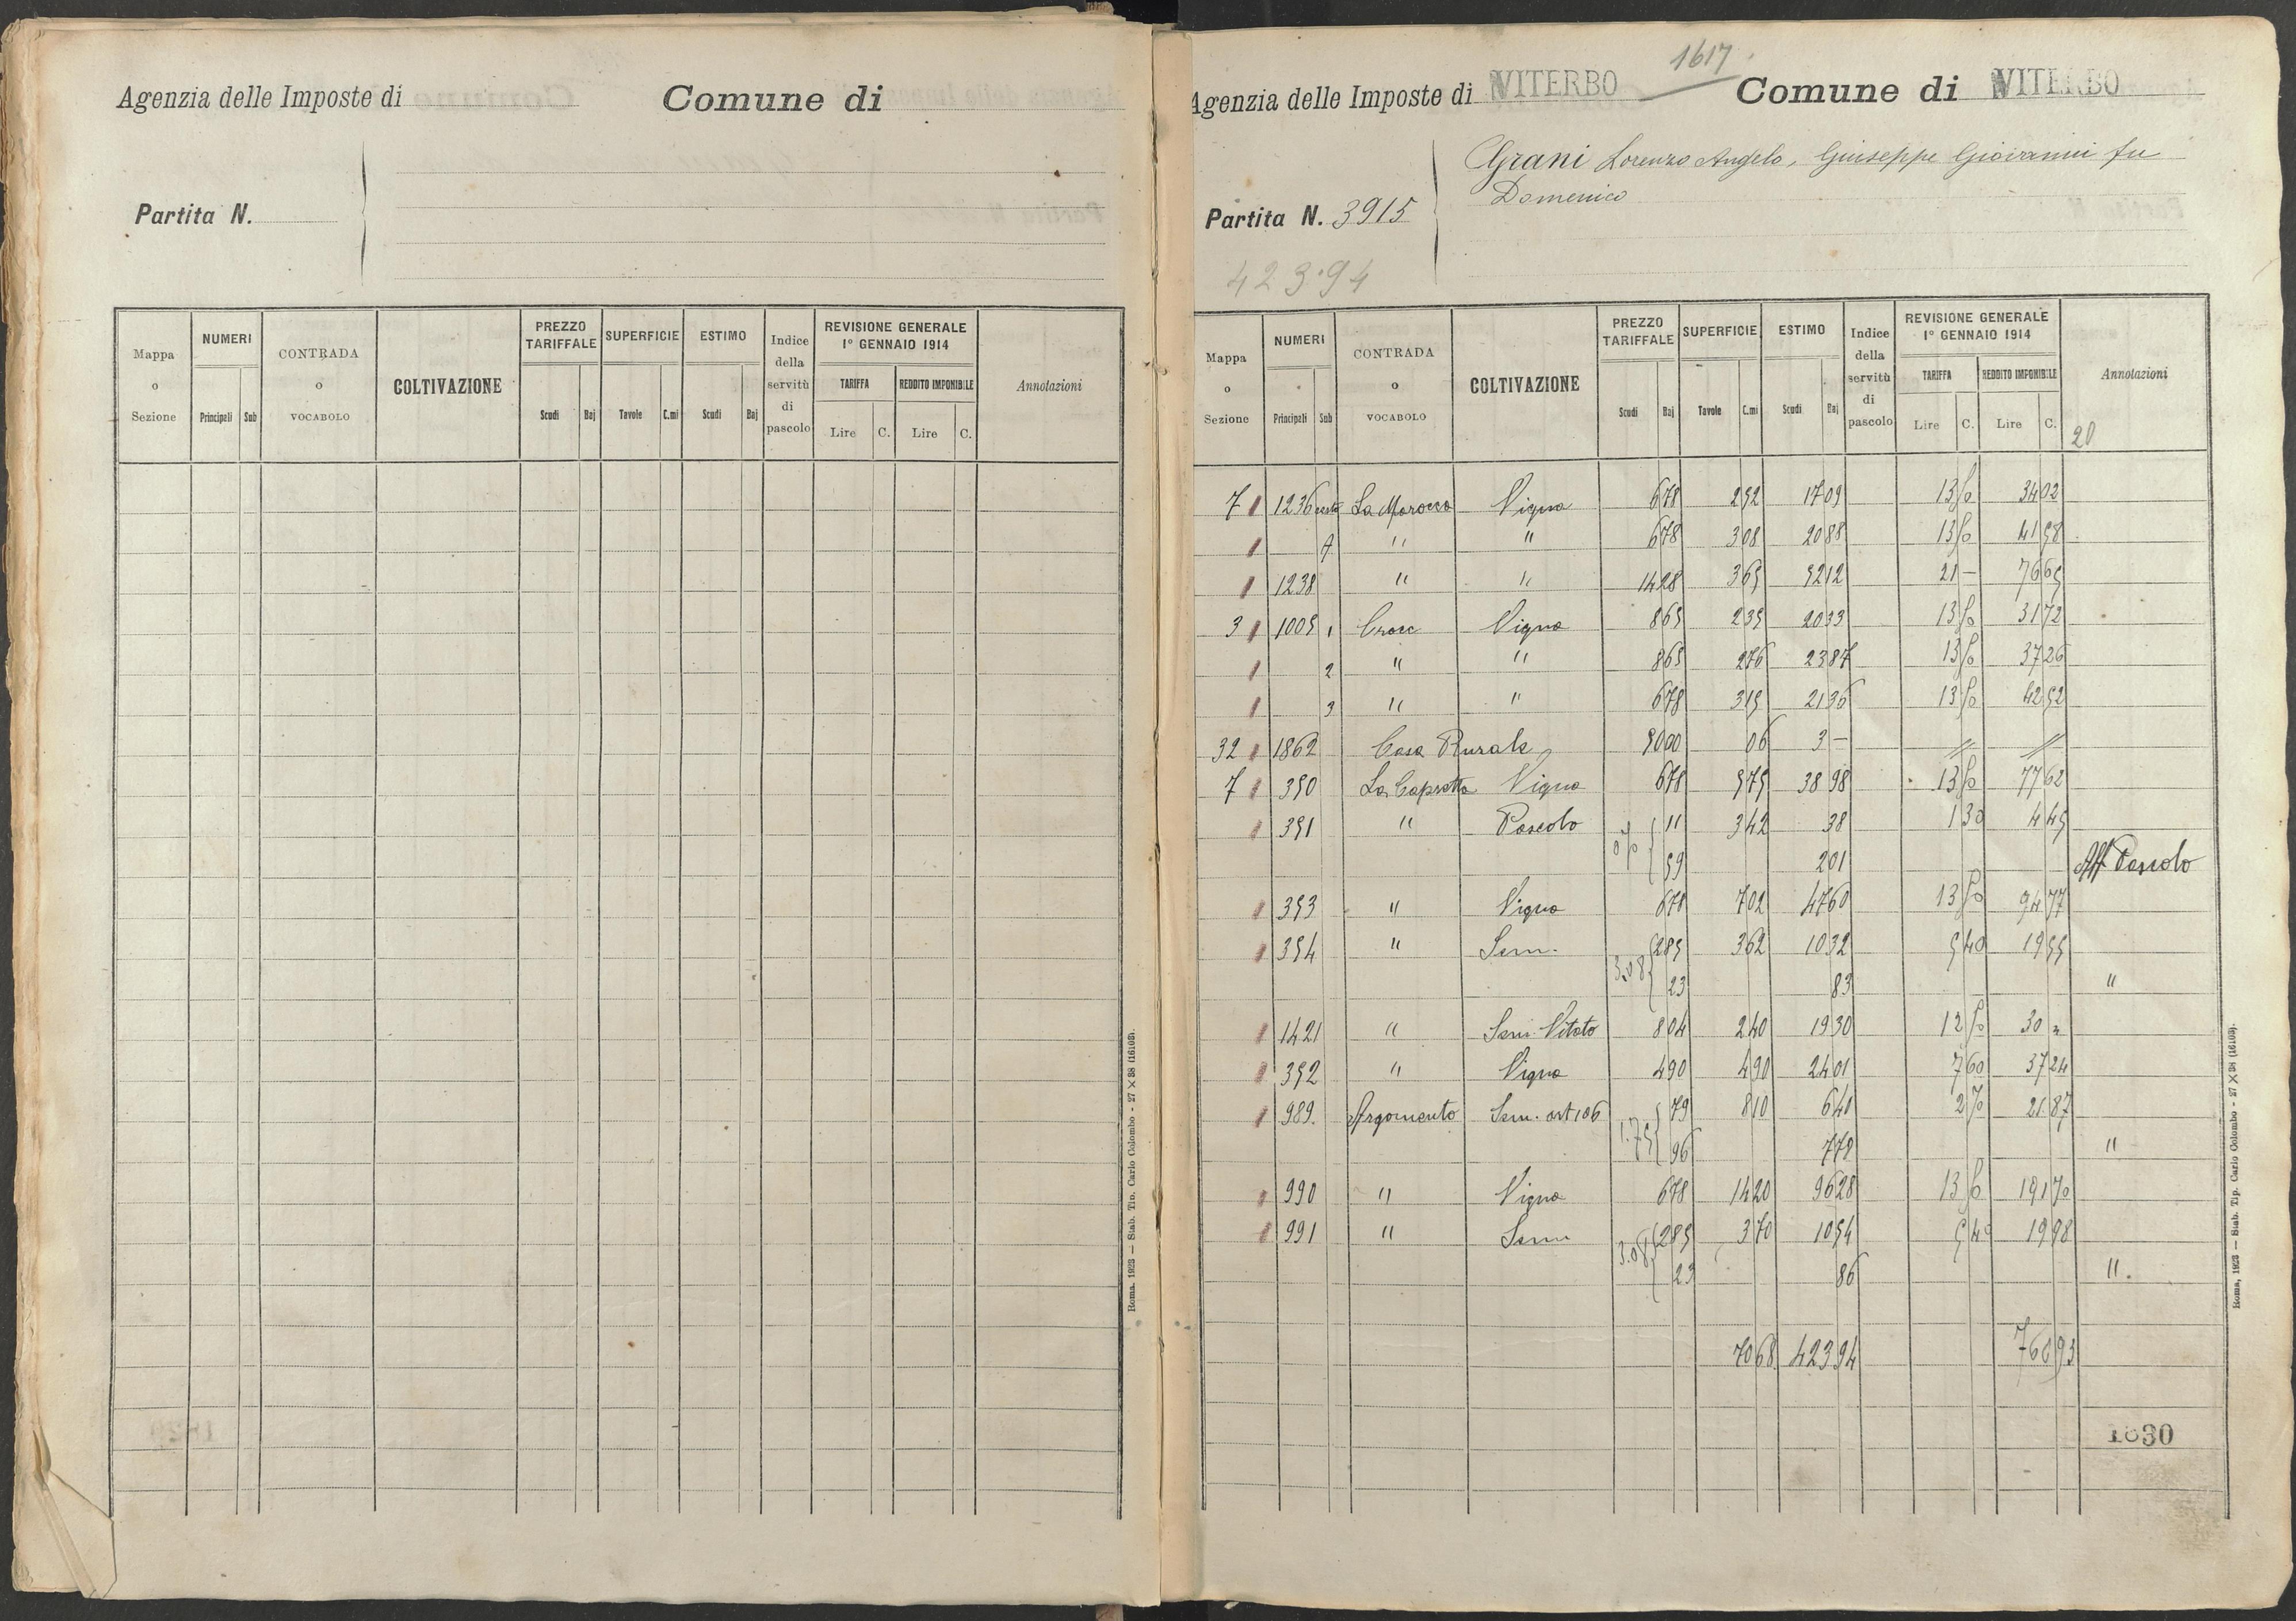 Agenzia delle Imposte di Comune di
Partita N.
Mappa o Sezione NUMERI Principali Sub CONTRADA o VOCABOLO COLTIVAZIONE PREZZO TARIFFALE Scudi Baj SUPERFICIE Tavole C.mi ESTIMO Scudi Baj Indice della servitù di pascolo REVISIONE GENERALE 1° GENNAIO 1914 TARIFFA Lire C. REDDITO IMPONIBILE Lire C. Annotazioni
Roma, 1923 — Stab. Tip. Carlo Colombo - 27 X 38 (16103).
1617
Agenzia delle Imposte di VITERBO Comune di VITERBO
Grani Lorenzo Angelo, Giuseppe Giovanni fu
Domenico
Partita N. 3915
423.94
Mappa o Sezione NUMERI Principali Sub CONTRADA o VOCABOLO COLTIVAZIONE PREZZO TARIFFALE Scudi Baj SUPERFICIE Tavole C.mi ESTIMO Scudi Baj Indice della servitù di pascolo REVISIONE GENERALE 1° GENNAIO 1914 TARIFFA Lire C. REDDITO IMPONIBILE Lire C. Annotazioni
20
7 1 1236 La Morocca Vigna 6 78 2 52 17 09 13 50 34 02
1 " " 6 78 3 08 20 88 13 50 41 58
1 1238 " " 14 28 3 65 52 12 21 — 76 65
3 1 1005 1 Croce Vigna 8 65 2 35 20 33 13 50 31 72
1 2 " " 8 65 2 76 23 87 13 50 37 26
1 3 " " 6 78 3 15 21 36 13 50 42 52
32 1 1862 Casa Rurale 50 00 06 3 — // //
7 1 350 La Capretta Vigna 6 78 5 75 38 98 13 50 77 62
1 351 " Pascolo 11 3 42 38 1 30 4 45
59 2 01 Aff Pascolo
1 353 " Vigna 6 78 7 02 47 60 13 50 94 77
1 354 " Sem. 3.08 2 85 3 62 10 32 5 40 19 55
23 83 "
1 1421 " Sem. Vitato 8 04 2 40 19 30 12 50 30 "
1 352 " Vigna 4 90 4 90 24 01 7 60 37 24
1 989 Argomento Sem. art 106 1.75 79 8 10 6 40 2 70 21 87
96 7 78 "
1 990 " Vigna 6 78 14 20 96 28 13 50 191 70
1 991 " Sem 3.08 2 85 3 70 10 54 5 40 19 98
23 86 "
70 68 423 94 760 93
1830
Roma, 1923 — Stab. Tip. Carlo Colombo - 27 X 38 (16103).